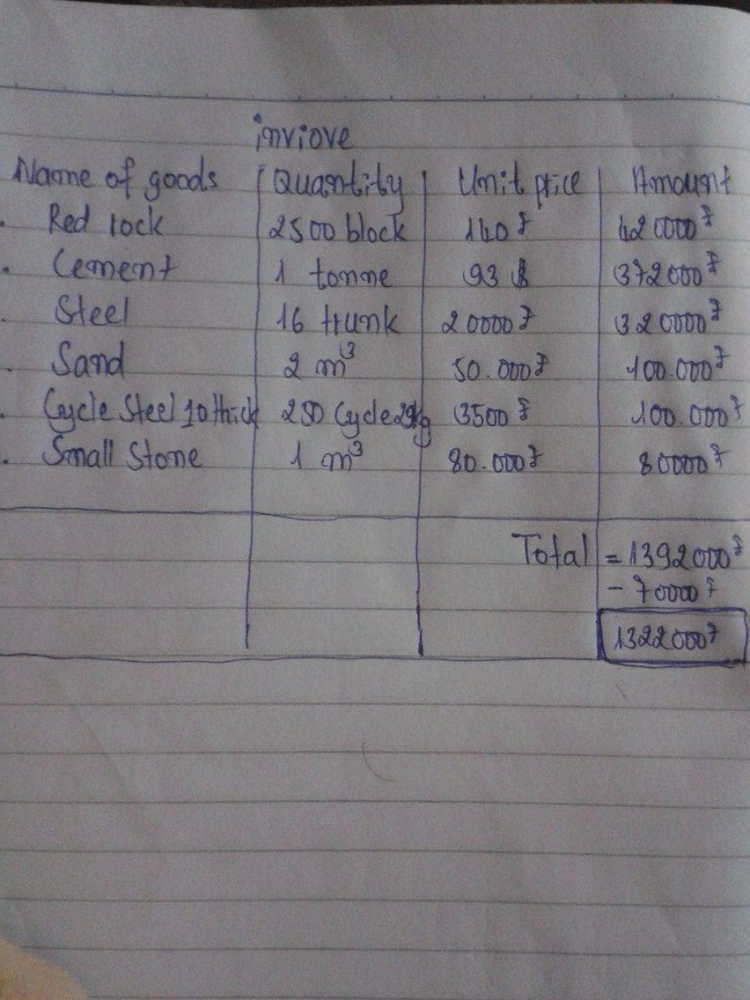 inviove
Name of goods Quantity Unit price Amount
. Red lock 2500 block 140៛ 420000៛
. Cement 1 tonne 93 $ 372000៛
. Steel 16 trunk 20000៛ 320000៛
. Sand 2 m³ 50.000៛ 100.000៛
. Cycle Steel 10 thick 250 Cycle 29kg 3500៛ 100.000៛
. Small Stone 1 m³ 80.000៛ 80000៛
Total = 1392000៛
- 70000៛
1322000៛